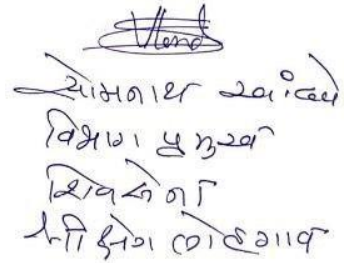 सोमनाथ खांदवे
विभाग प्रमुख
शिवसेना
लोहगाव